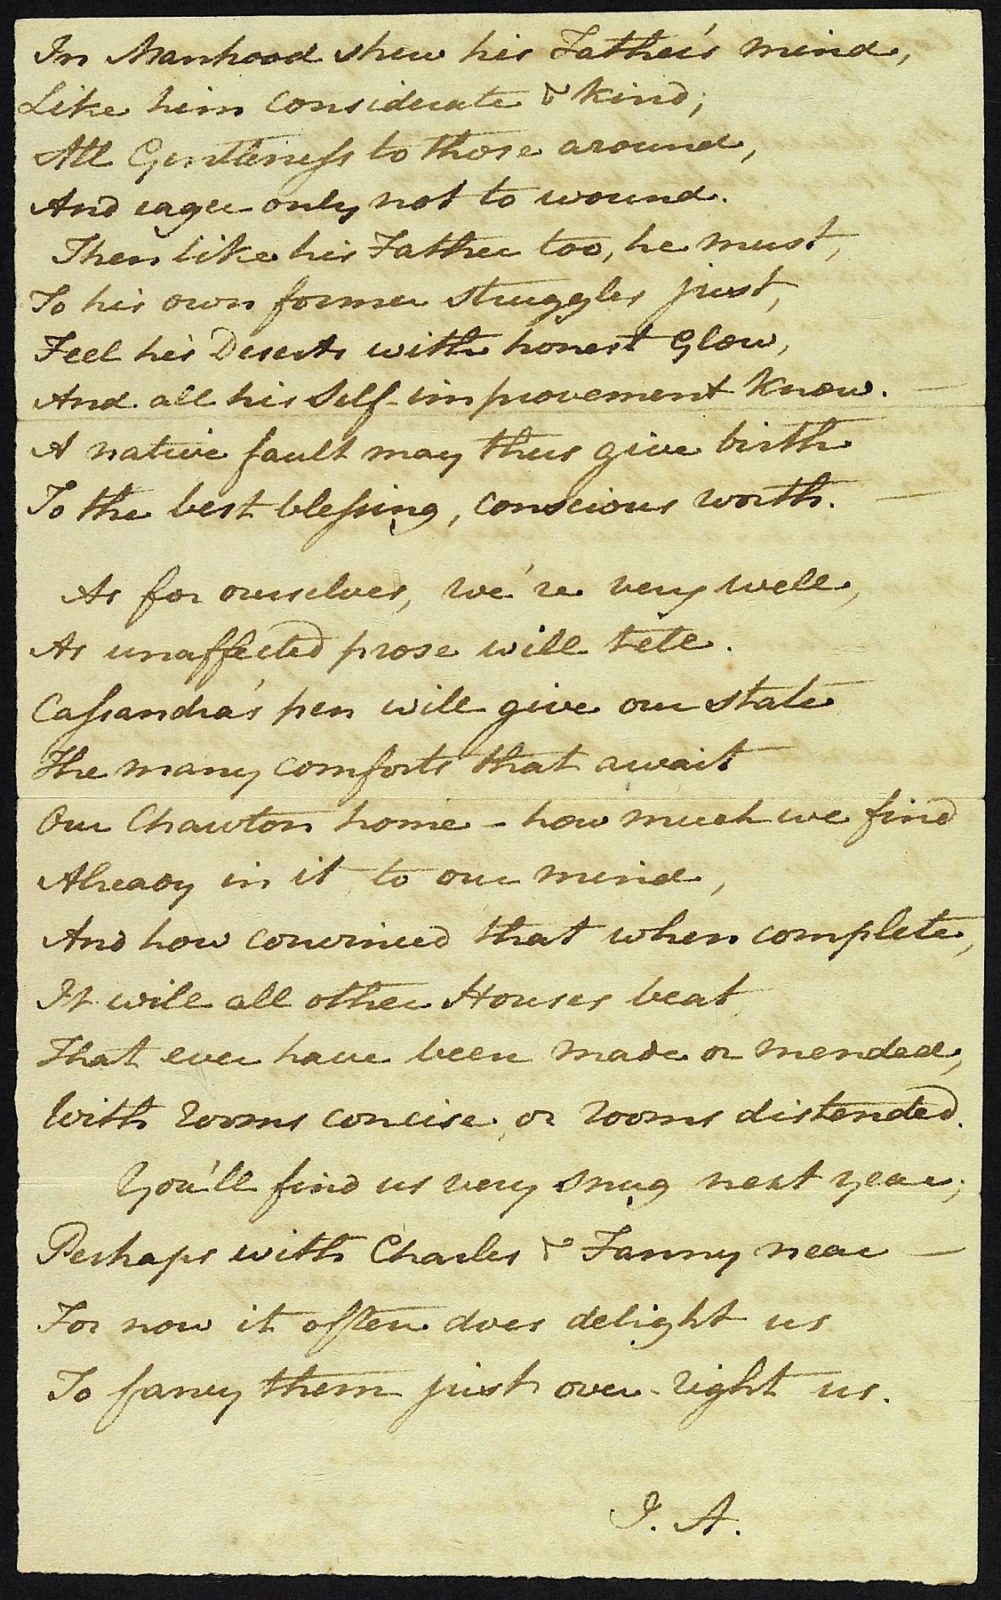 In Manhood shew his Father's mind,
Like him considerate & kind;
All Gentleness to those around,
And eager only not to wound.
Then like his Father too, he must,
To his own former struggles just,
Feel his Deserts with honest Glow,
And all his Self-improvement know. —
A native fault may thus give birth
To the best blessing, conscious worth. —
As for ourselves, we're very well,
As unaffected prose will tell.
Cassandra's pen will give our state
The many comforts that await
Our Chawton home - how much we find
Already in it to our mind,
And how convinced that when complete,
It will all other Houses beat
That ever have been made or mended,
With rooms concise, or rooms distended.
You'll find us very snug next year;
Perhaps with Charles & Fanny near —
For now it often does delight us
To fancy them just over-right us.
J. A.